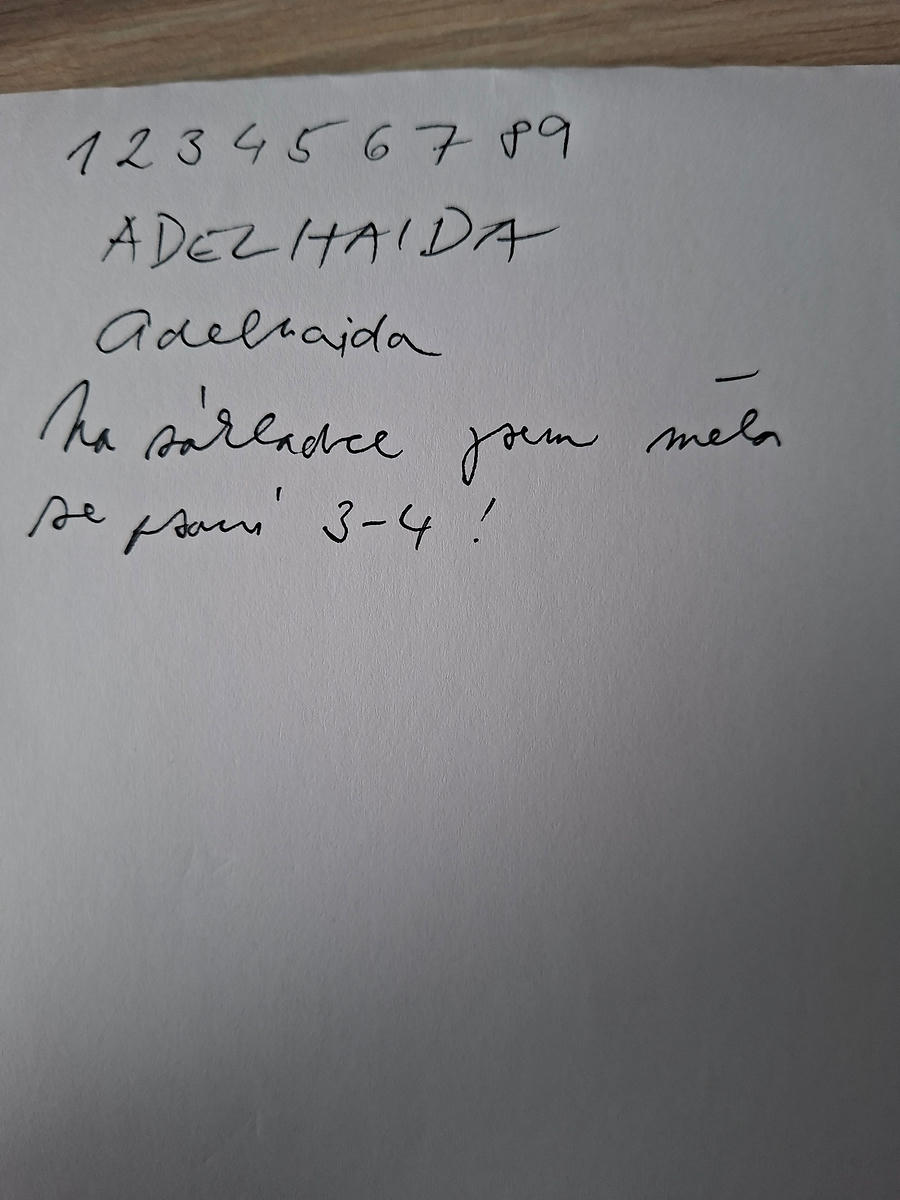 1 2 3 4 5 6 7 8 9
ADELHAIDA
Adelhajda
Na základce jsem měla
ze psaní 3-4!